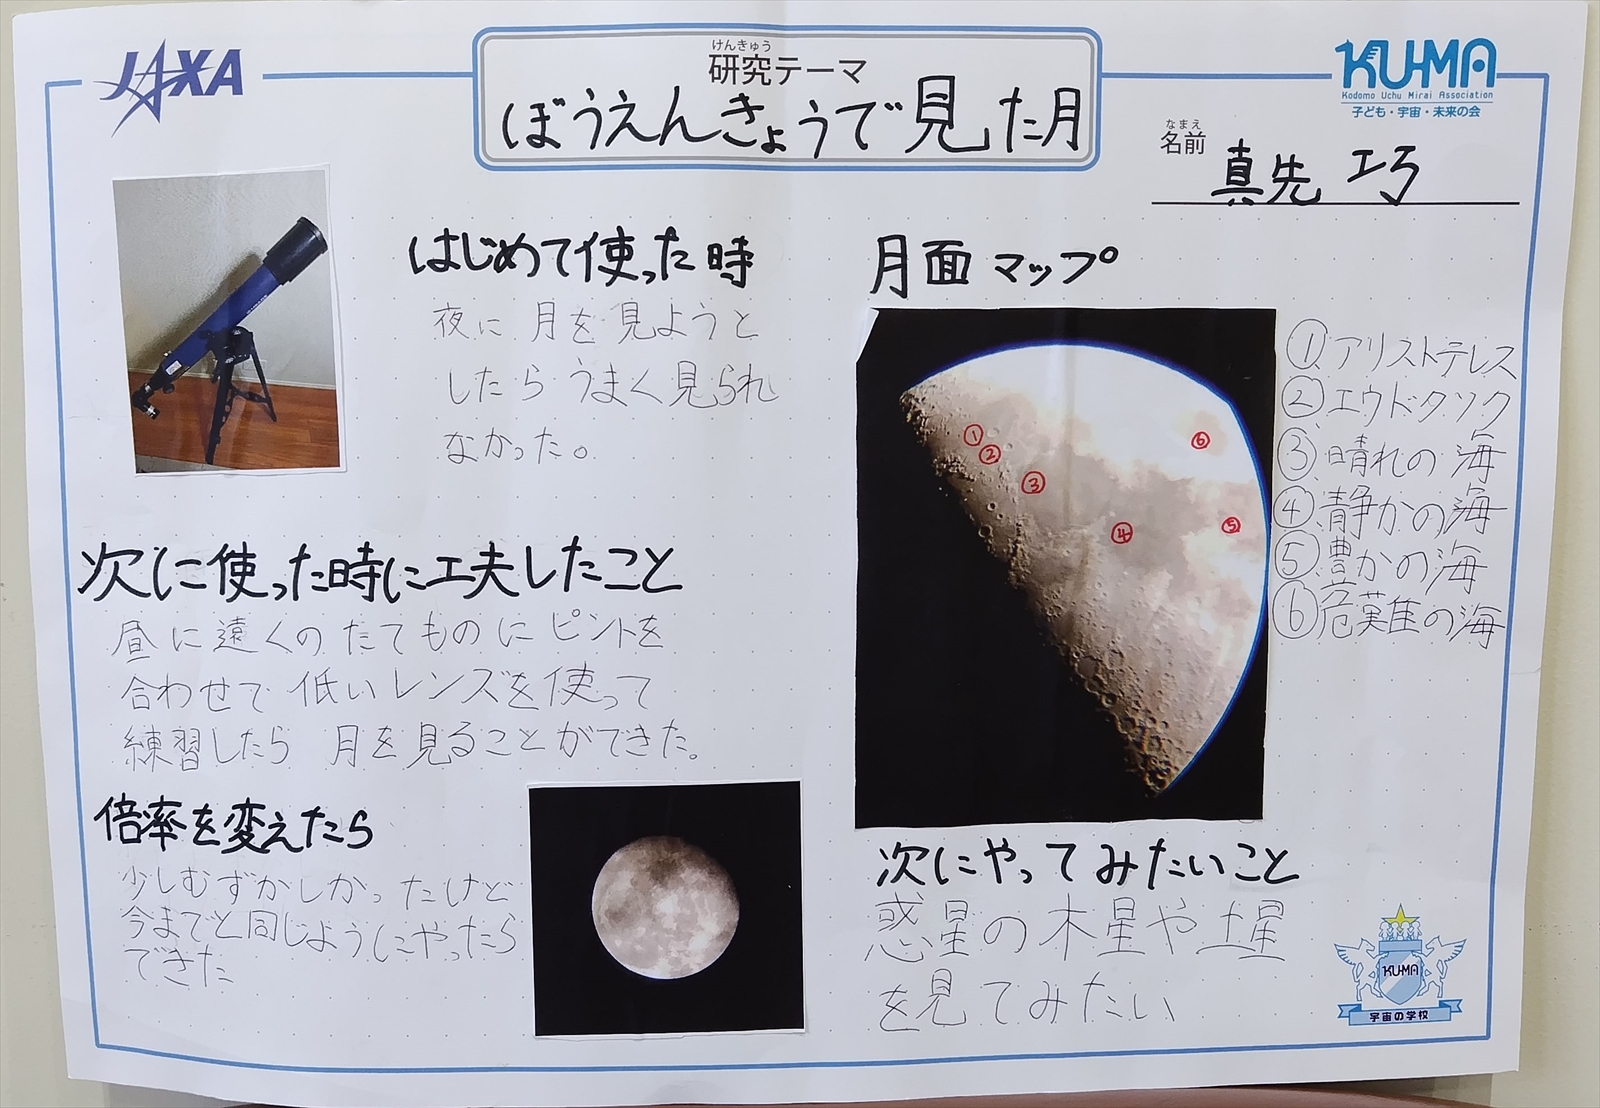 JAXA
けんきゅう
研究テーマ
ぼうえんきょうで見た月
KUMA
Kodomo Uchu Mirai Association
子ども・宇宙・未来の会
なまえ
名前
真先 巧
はじめて使った時
夜に月を見ようと
したらうまく見られ
なかった。
次に使った時に工夫したこと
昼に遠くのたてものにピントを
合わせて低いレンズを使って
練習したら月を見ることができた。
倍率を変えたら
少しむずかしかったけど
今までと同じようにやったら
できた
月面マップ
①
②
③
④
⑤
⑥
①アリストテレス
②エウドクソク
③晴れの海
④静かの海
⑤豊かの海
⑥危難の海
次にやってみたいこと
惑星の木星や土星
を見てみたい
KUMA
宇宙の学校